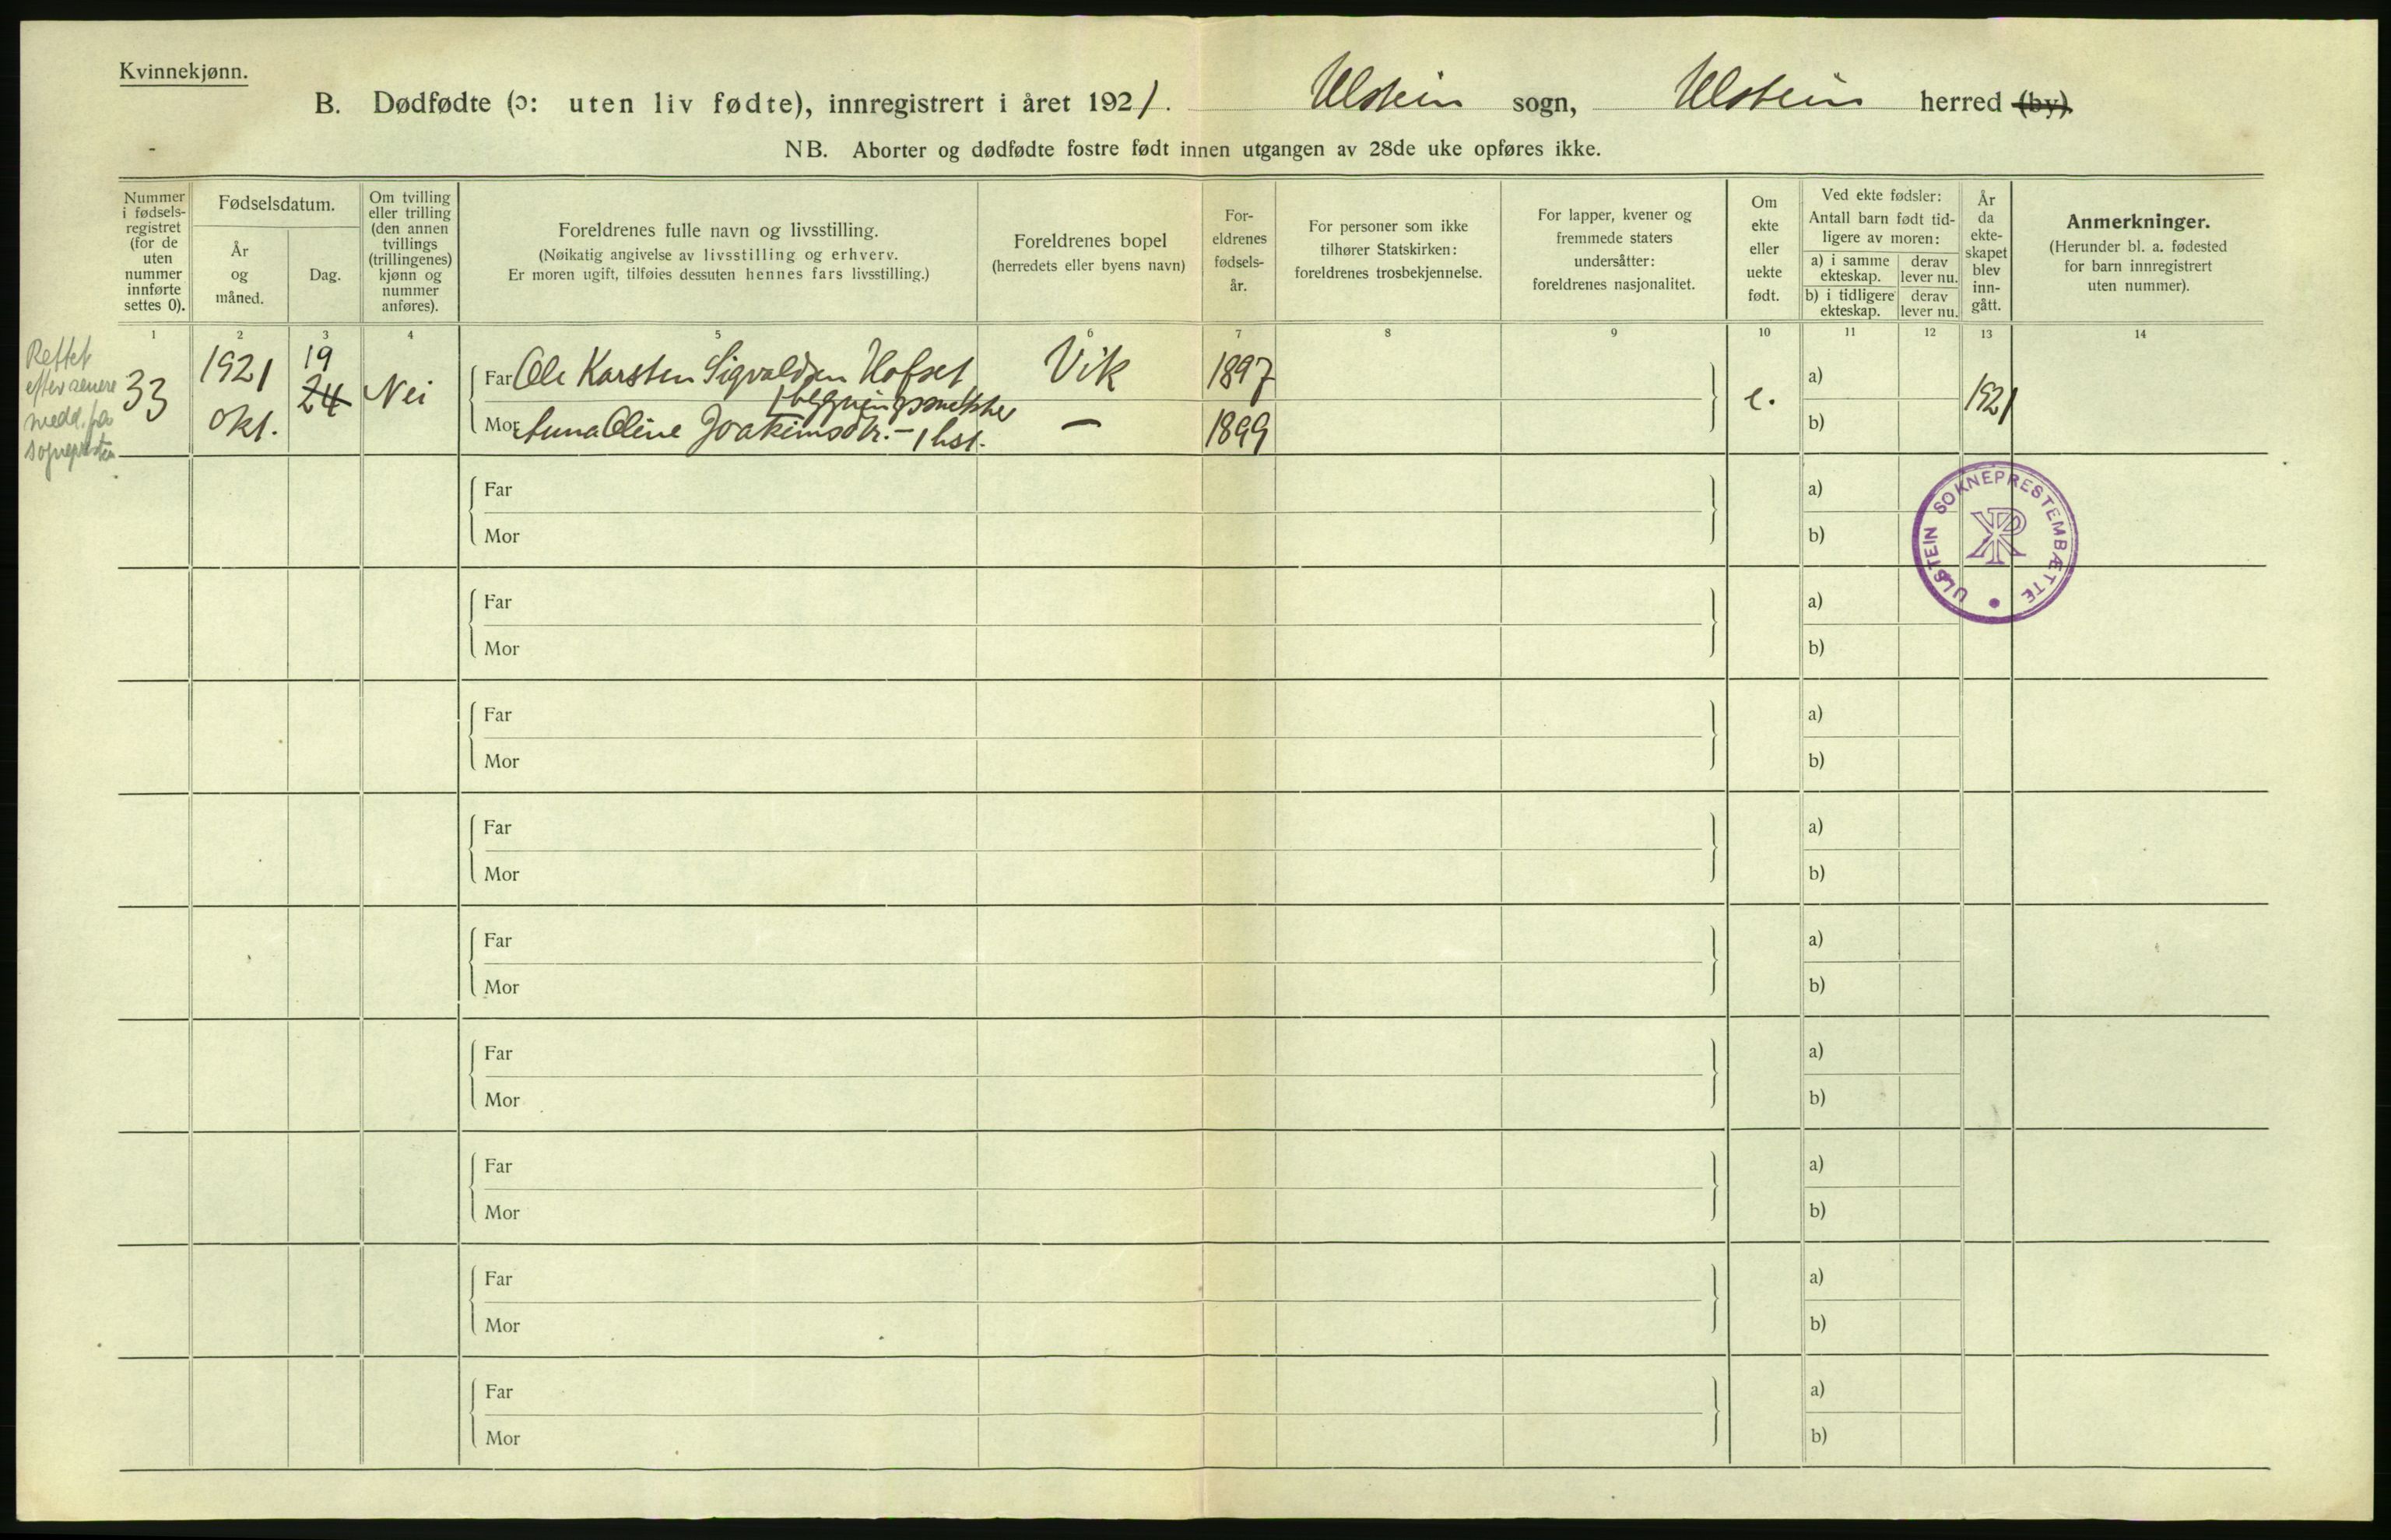 Kvinnekjønn.
B. Dødfødte (ɔ: uten liv fødte), innregistrert i året 1921. Ulstein sogn, Ulstein herred (by)
NB. Aborter og dødfødte fostre født innen utgangen av 28de uke opføres ikke.
Nummer
i fødsels-
registret
(for de
uten
nummer
innførte
settes 0).
Fødselsdatum.
År
og
måned.
Dag.
Om tvilling
eller trilling
(den annen
tvillings
(trillingenes)
kjønn og
nummer
anføres).
Foreldrenes fulle navn og livsstilling.
(Nøikatig angivelse av livsstilling og erhverv.
Er moren ugift, tilføies dessuten hennes fars livsstilling.)
Foreldrenes bopel
(herredets eller byens navn)
For-
eldrenes
fødsels-
år.
For personer som ikke
tilhører Statskirken:
foreldrenes trosbekjennelse.
For lapper, kvener og
fremmede staters
undersåtter:
foreldrenes nasjonalitet.
Om
ekte
eller
uekte
født.
Ved ekte fødsler:
Antall barn født tid-
ligere av moren:
a) i samme
ekteskap.
derav
lever nu.
b) i tidligere
ekteskap.
derav
lever nu.
År
da
ekte-
skapet
blev
inn-
gått.
Anmerkninger.
(Herunder bl. a. fødested
for barn innregistrert
uten nummer).
1 2 3 4 5 6 7 8 9 10 11 12 13 14
Rettet
efter senere
medd. fra
sognepresten
33
1921
okt.
19
24
Nei
Far Ole Karsten Sigvaldsen Hofset
bygningssnekker
Mor Anna Oline Joakimsdtr. - hst.
Vik
—
1897
1899
e.
a)
b)
1921
Far
Mor
a)
b)
ULSTEIN SOKNEPRESTEMBÆTTE
Far
Mor
a)
b)
Far
Mor
a)
b)
Far
Mor
a)
b)
Far
Mor
a)
b)
Far
Mor
a)
b)
Far
Mor
a)
b)
Far
Mor
a)
b)
Far
Mor
a)
b)